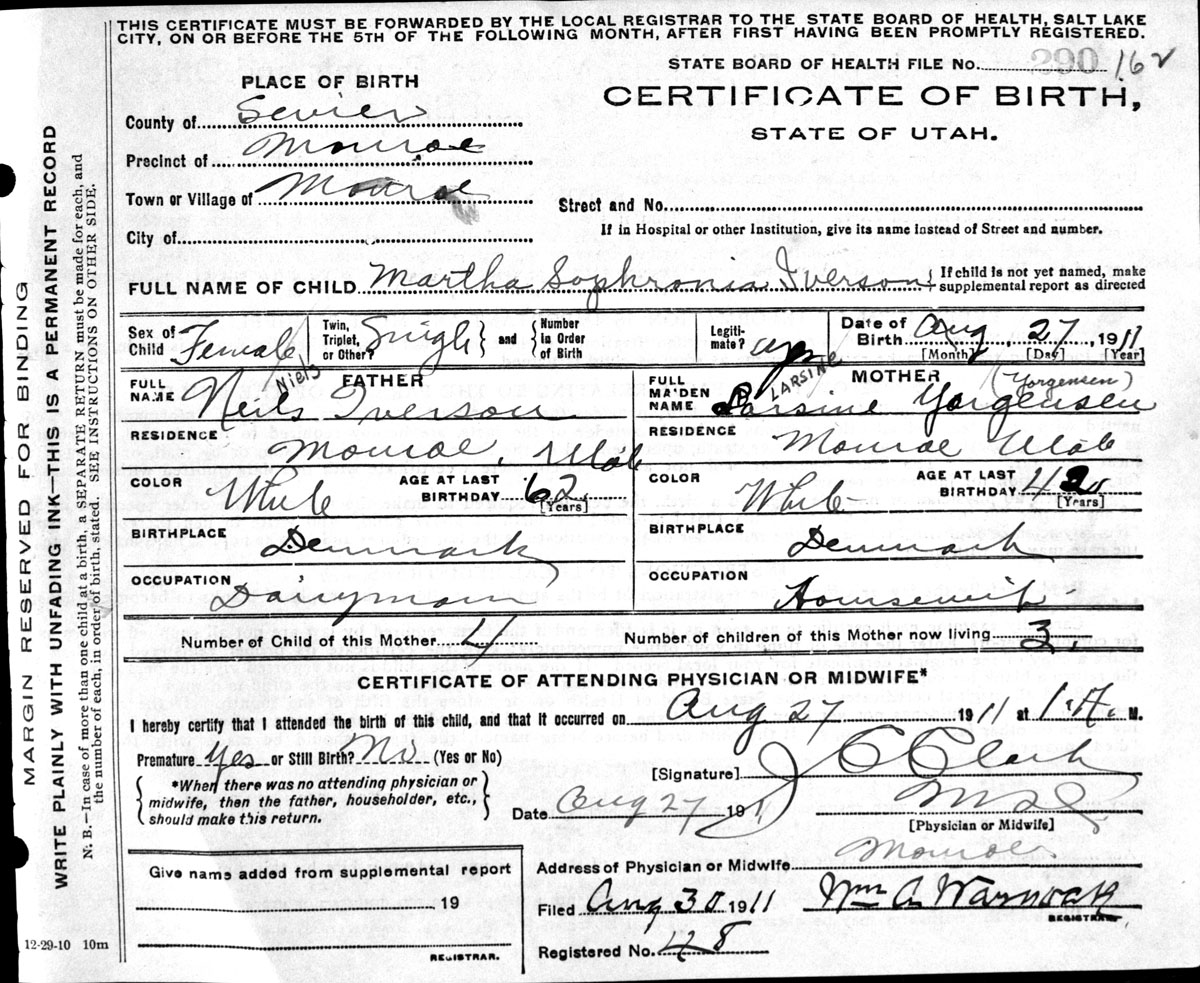 THIS CERTIFICATE MUST BE FORWARDED BY THE LOCAL REGISTRAR TO THE STATE BOARD OF HEALTH, SALT LAKE
CITY, ON OR BEFORE THE 5TH OF THE FOLLOWING MONTH, AFTER FIRST HAVING BEEN PROMPTLY REGISTERED.
STATE BOARD OF HEALTH FILE No. 290 162
PLACE OF BIRTH
CERTIFICATE OF BIRTH,
STATE OF UTAH.
County of Sevier
Precinct of Monroe
Town or Village of Monroe
Street and No.
City of
If in Hospital or other Institution, give its name instead of Street and number.
FULL NAME OF CHILD Martha Sophronia Iverson { If child is not yet named, make
supplemental report as directed
Sex of Child Female
Twin, Triplet, or Other? Single } and { Number in Order of Birth
Legitimate? yes
Date of Birth Aug 27, 1911
[Month] [Day] [Year]
FATHER
FULL NAME Neils Iverson
Niels
RESIDENCE Monroe, Utah
COLOR White AGE AT LAST BIRTHDAY 62 [Years]
BIRTHPLACE Denmark
OCCUPATION Dairyman
MOTHER
FULL MAIDEN NAME Larsine Yorgensen
LARSINE (Yorgensen)
RESIDENCE Monroe Utah
COLOR White AGE AT LAST BIRTHDAY 42 [Years]
BIRTHPLACE Denmark
OCCUPATION Housewife
Number of Child of this Mother 4
Number of children of this Mother now living 3.
CERTIFICATE OF ATTENDING PHYSICIAN OR MIDWIFE*
I hereby certify that I attended the birth of this child, and that it occurred on Aug 27 1911 at 1 A. M.
Premature yes or Still Birth? No (Yes or No)
{ *When there was no attending physician or
midwife, then the father, householder, etc.,
should make this return. }
[Signature] J C Clark
Date Aug 27 1911
[Physician or Midwife]
Address of Physician or Midwife Monroe
Give name added from supplemental report
19
REGISTRAR.
Filed Aug 30 1911 Wm A Warnock
REGISTRAR.
Registered No. 48
12-29-10 10m
MARGIN RESERVED FOR BINDING
WRITE PLAINLY WITH UNFADING INK—THIS IS A PERMANENT RECORD
N. B.—In case of more than one child at a birth, a SEPARATE RETURN must be made for each, and
the number of each, in order of birth, stated. SEE INSTRUCTIONS ON OTHER SIDE.